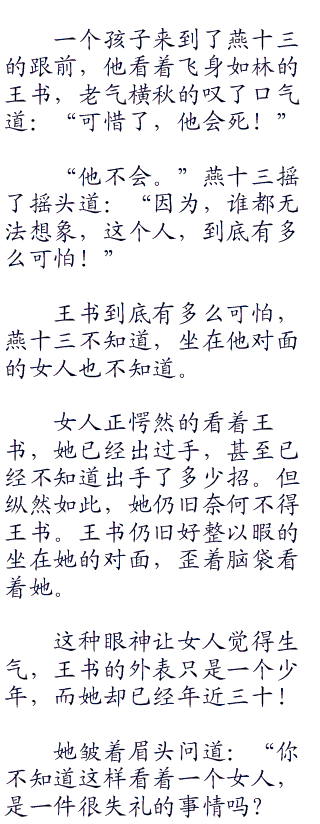 一个孩子来到了燕十三
的跟前，他看着飞身如林的
王书，老气横秋的叹了口气
道：“可惜了，他会死！”
“他不会。”燕十三摇
了摇头道：“因为，谁都无
法想象，这个人，到底有多
么可怕！”
王书到底有多么可怕，
燕十三不知道，坐在他对面
的女人也不知道。
女人正愕然的看着王
书，她已经出过手，甚至已
经不知道出手了多少招。但
纵然如此，她仍旧奈何不得
王书。王书仍旧好整以暇的
坐在她的对面，歪着脑袋看
着她。
这种眼神让女人觉得生
气，王书的外表只是一个少
年，而她却已经年近三十！
她皱着眉头问道：“你
不知道这样看着一个女人，
是一件很失礼的事情吗？